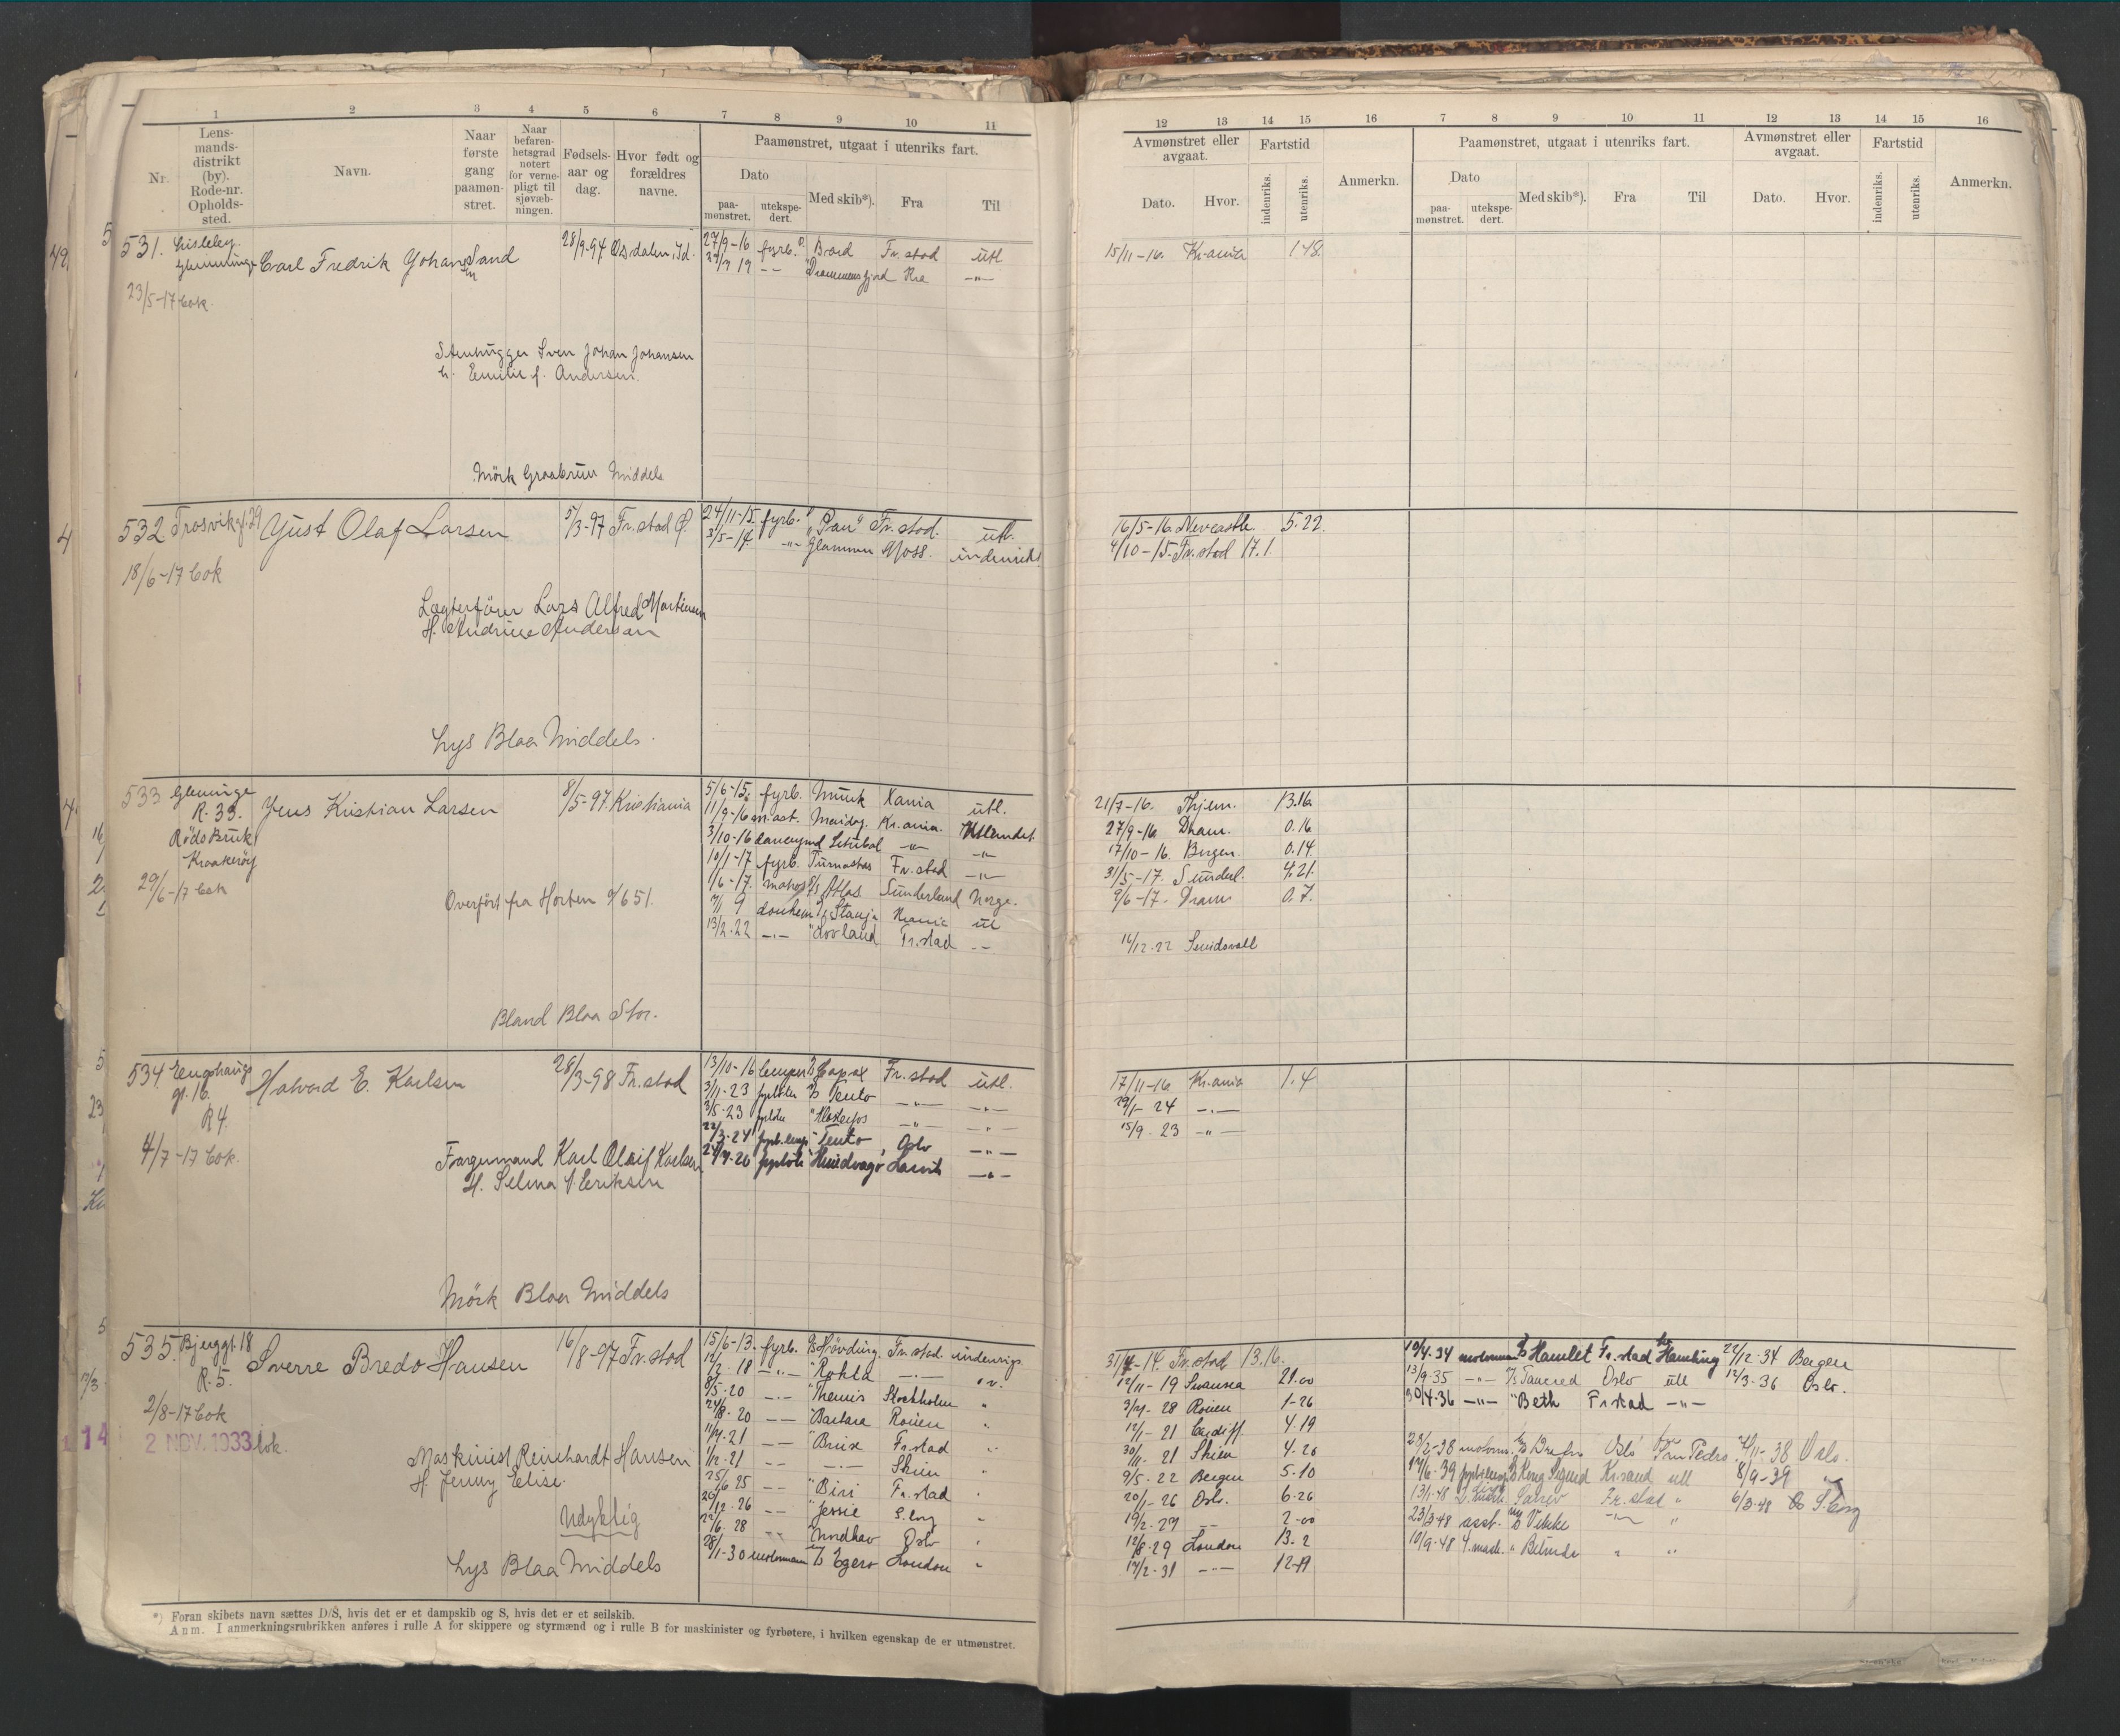 1 2 3 4 5 6 7 8 9 10 11
Nr.
Lensmandsdistrikt (by). Rode-nr. Opholdssted.
Navn.
Naar første gang paamønstret.
Naar befarenhetsgrad notert for vernepligt til sjøvæbningen.
Fødselsaar og dag.
Hvor født og forældres navne.
Paamønstret, utgaat i utenriks fart.
Dato
paamønstret.
utekspedert.
Med skib*).
Fra
Til
12 13 14 15 16 7 8 9 10 11 12 13 14 15 16
Avmønstret eller avgaat.
Fartstid
Dato. Hvor.
indenriks.
utenriks.
Anmerkn.
Paamønstret, utgaat i utenriks fart.
Dato
paamønstret.
utekspedert.
Med skib*).
Fra
Til
Avmønstret eller avgaat.
Dato. Hvor.
Fartstid
indenriks.
utenriks.
Anmerkn.
531. Carl Fredrik Johansen Sand 28/9-94 Osdalen, Id.
27/9-16 fyrb. Brard Fr.stad utl
Drammensfjord Kra -"-
15/11-16. Kr.ania 1.18.
23/5-17 bok.
Stenhugger Sven Johan Johansen
h. Emilie f. Andersen.
Mörk Graabrun Middels
532 Trosvikg. 29 Just Olaf Larsen 5/3-97 Fr.stad
24/11-15. fyrb. "Pan" Fr.stad. utl.
3/5-14. -"- Glommen Moss. indenriks
16/5-16. Newcastle. 5.22.
4/10-15. Fr.stad 17.1.
18/6-17 bok
Lægterförer Lars Alfred Martinsen
H. Andrine Andersen
Lys Blaa Middels.
533 Glemmige
R. 33. Jens Kristian Larsen 8/5-97. Kristiania
Röds Bruk
Kraakeröy
29/6-17 bok
Overfört fra Horten 651.
5/6-15. fyrb. Munk Kania utl.
11/9-16 Kr.ania. Utlandet
3/10-16 Setubal -"- -"-
10/1-17 fyrb. Fr.stad -"-
1/6-17. Atlas Sunderland Norge.
donkem Kania ut
13/2.22 -"- Lovland Fr.stad --
21/7-16. 13.16.
27/9-16. Dram. 0.16
17/10-16. Bergen. 0.14.
31/5-17. Sunderl. 4.21.
9/6-17. Dram. 0.7.
Sundsvall
Bland Blaa Stor.
534 Halvard E. Karlsen 28/3-98 Fr.stad
gt. 16.
R 4.
4/7-17 bok.
13/10-16 lemper Fr.stad utl.
3/11-23 Tento -"- -"-
3/5-23 -"- -"-
22/3-24 Tento Oslo -"-
17/11-16 Kr.ania 1.4
29/1-24 -"-
15/9.23 -"-
Karl Olaif Karlsen
H. Selma Eriksen
Mörk Blaa Middels
535. Bjerggt. 18 Sverre Bredo Hansen 16/8-97 Fr.stad
R. 5.
2/8-17 bok
2 NOV. 1933 bok.
Maskinist Reinhardt Hansen
H. Jenny Elise.
Udyktig
Lys Blaa Middels
15/6-13. fyrb. Hövding Fr.stad. indenrigs
18 -"- Rokta -"-
8/5-20 -"- Themis Stockholm "
24/8-20 -- Barbara Rouen "
11/4.21 -- Brise Fr.stad "
1/12-21 -- -"- Skien "
25/6 25 -- Biri Fr.stad "
26/12.26 -- Jessie S.borg "
22/6.28 -- Nordhav Oslo "
28/1-30 motormann Egero London "
31/4-14. Fr.stad 13.16.
12/11-19 Swansea 21.00
Rouen 1-26
12/1-21 Cardiff. 4.19
30/11 21 Skien 4.26
9/5.22 Bergen 5-10
20/1-26 Oslo. 6-26
19/2-27 -- 2-00
12/8-29 London 13-2
17/2-31 -"- 12-19
10/4.34 motormann Hamlet Fr.stad Hamburg 22/12-34 Bergen
13/9-35 -"- Tancred Oslo utl 12/3-36 Oslo.
30/4-36 -"- Beth Fr.stad -"-
23/2-38 motorm. Oslo San Pedro 38 Oslo.
17/6.39 Kong Sigurd Kr.sand utl 8/9-39 "
13/1-48 Fr.stad " 6/3-48 S.borg
23/3-48 asst. Vibeke -"- "
10/9-48 4.mask. " Belinda " "
*) Foran skibets navn sættes D/S, hvis det er et dampskib og S, hvis det er et seilskib.
Anm. I anmerkningsrubrikken anføres i rulle A for skippere og styrmænd og i rulle B for maskinister og fyrbøtere, i hvilken egenskap de er utmønstret.